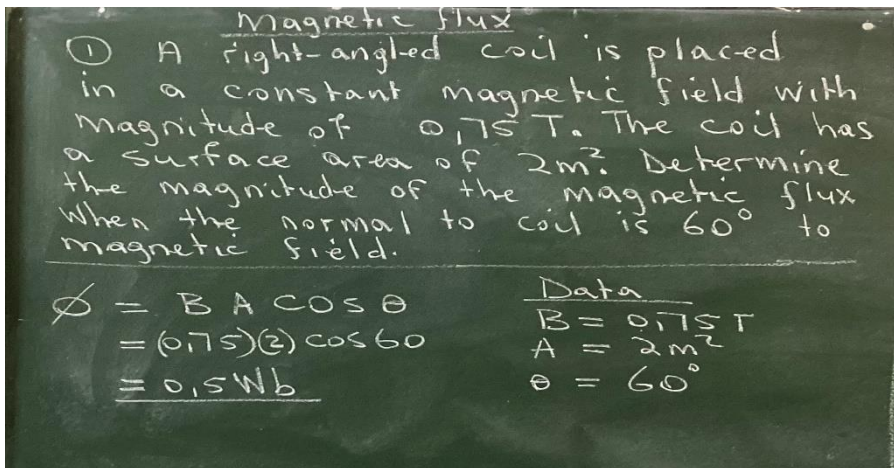 Magnetic flux
① A right-angled coil is placed
in a constant magnetic field with
magnitude of 0,75 T. The coil has
a surface area of 2m². Determine
the magnitude of the magnetic flux
when the normal to coil is 60° to
magnetic field.
Φ = B A cos θ
= (0,75)(2) cos 60
= 0,5 Wb
Data
B = 0,75 T
A = 2m²
θ = 60°